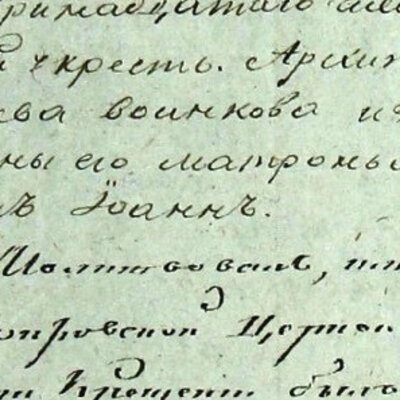 тринадцатаго
и ч кресть. Архип
ева воинкова и
ны его матроны
нъ Їоаннъ.
Молитвовалъ, им
покровской Церкви
ти Крещеніи былъ